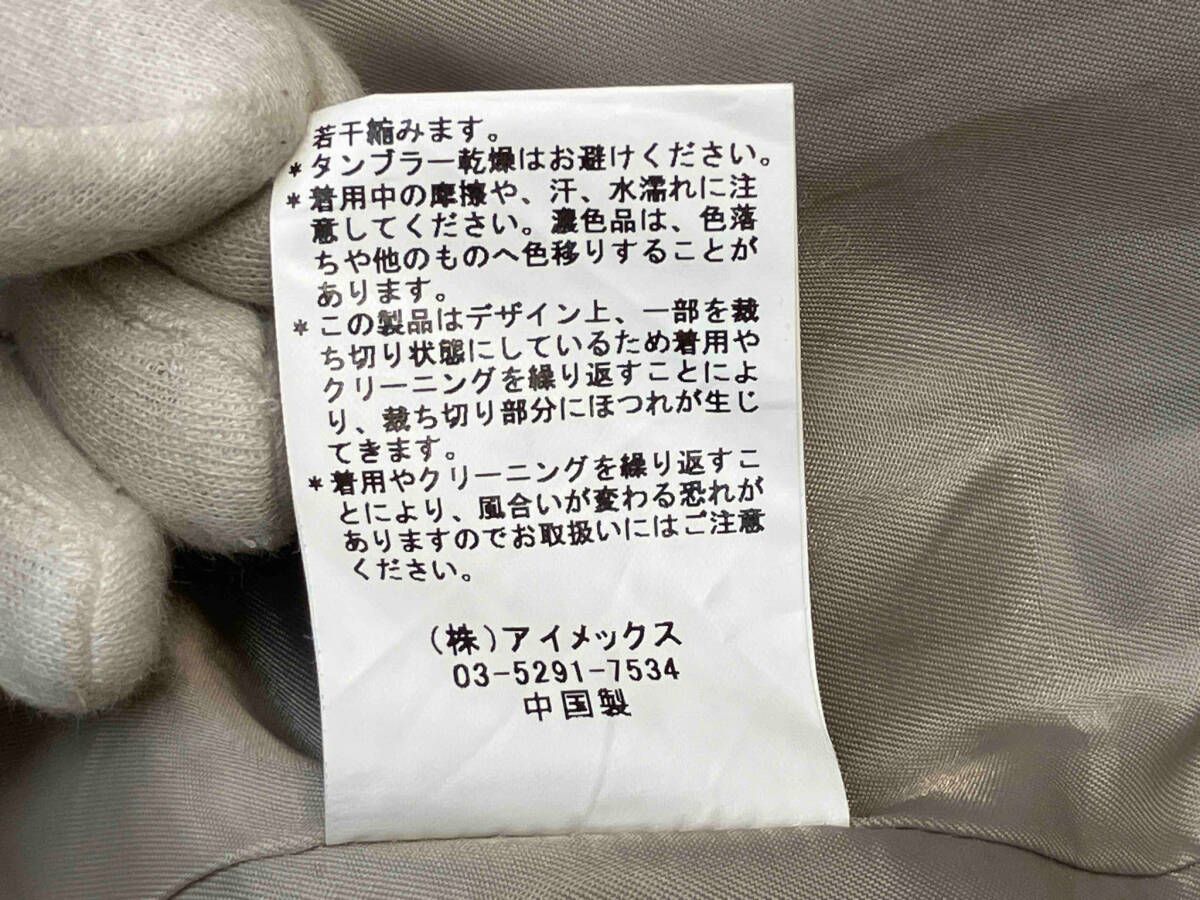 若干縮みます。
*タンブラー乾燥はお避けください。
*着用中の摩擦や、汗、水濡れに注
意してください。濃色品は、色落
ちや他のものへ色移りすることが
あります。
*この製品はデザイン上、一部を裁
ち切り状態にしているため着用や
クリーニングを繰り返すことによ
り、裁ち切り部分にほつれが生じ
てきます。
*着用やクリーニングを繰り返すこ
とにより、風合いが変わる恐れが
ありますのでお取扱いにはご注意
ください。
(株)アイメックス
03-5291-7534
中国製